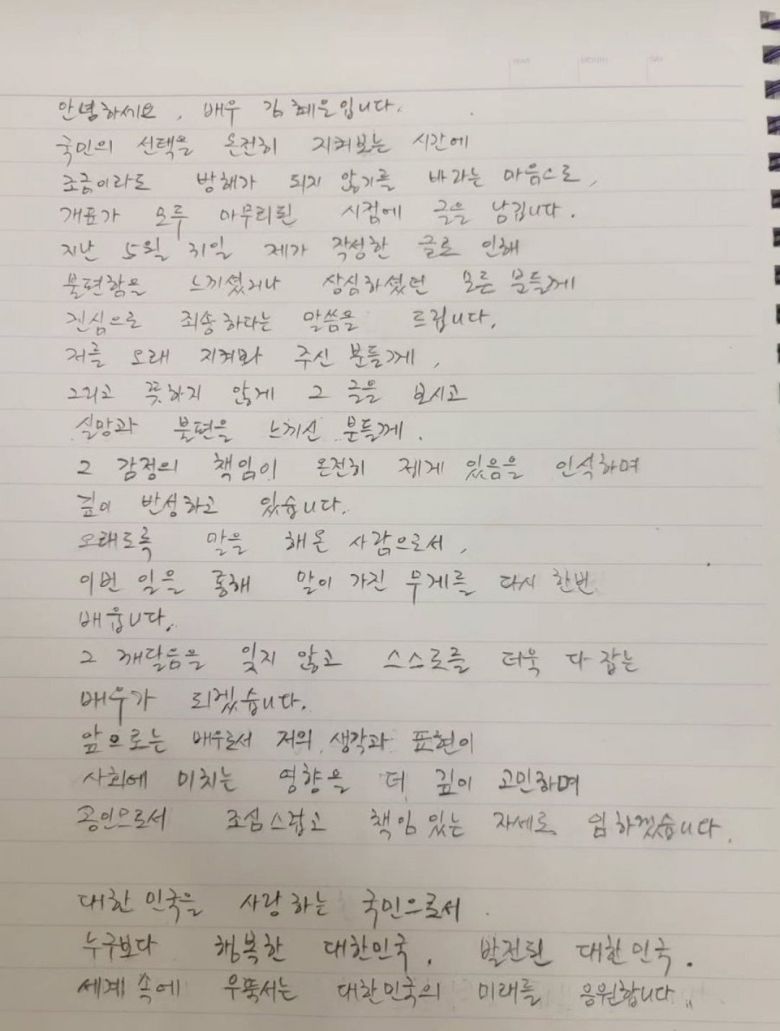 안녕하세요, 배우 김혜은입니다.
국민의 선택을 온전히 지켜보는 시간에
조금이라도 방해가 되지 않기를 바라는 마음으로,
개표가 모두 마무리된 시점에 글을 남깁니다.
지난 5월 31일 제가 작성한 글로 인해
불편함을 느끼셨거나 상심하셨던 모든 분들께
진심으로 죄송하다는 말씀을 드립니다.
저를 오래 지켜봐 주신 분들께,
그리고 뜻하지 않게 그 글을 보시고
실망과 불편을 느끼신 분들께.
그 감정의 책임이 온전히 제게 있음을 인식하며
깊이 반성하고 있습니다.
오래도록 말을 해온 사람으로서,
이번 일을 통해 말이 가진 무게를 다시 한번
배웁니다.
그 깨달음을 잊지 않고 스스로를 더욱 다잡는
배우가 되겠습니다.
앞으로는 배우로서 저의 생각과 표현이
사회에 미치는 영향을 더 깊이 고민하며
공인으로서 조심스럽고 책임 있는 자세로 임하겠습니다.
대한민국을 사랑하는 국민으로서.
누구보다 행복한 대한민국, 발전된 대한민국.
세계 속에 우뚝서는 대한민국의 미래를 응원합니다.